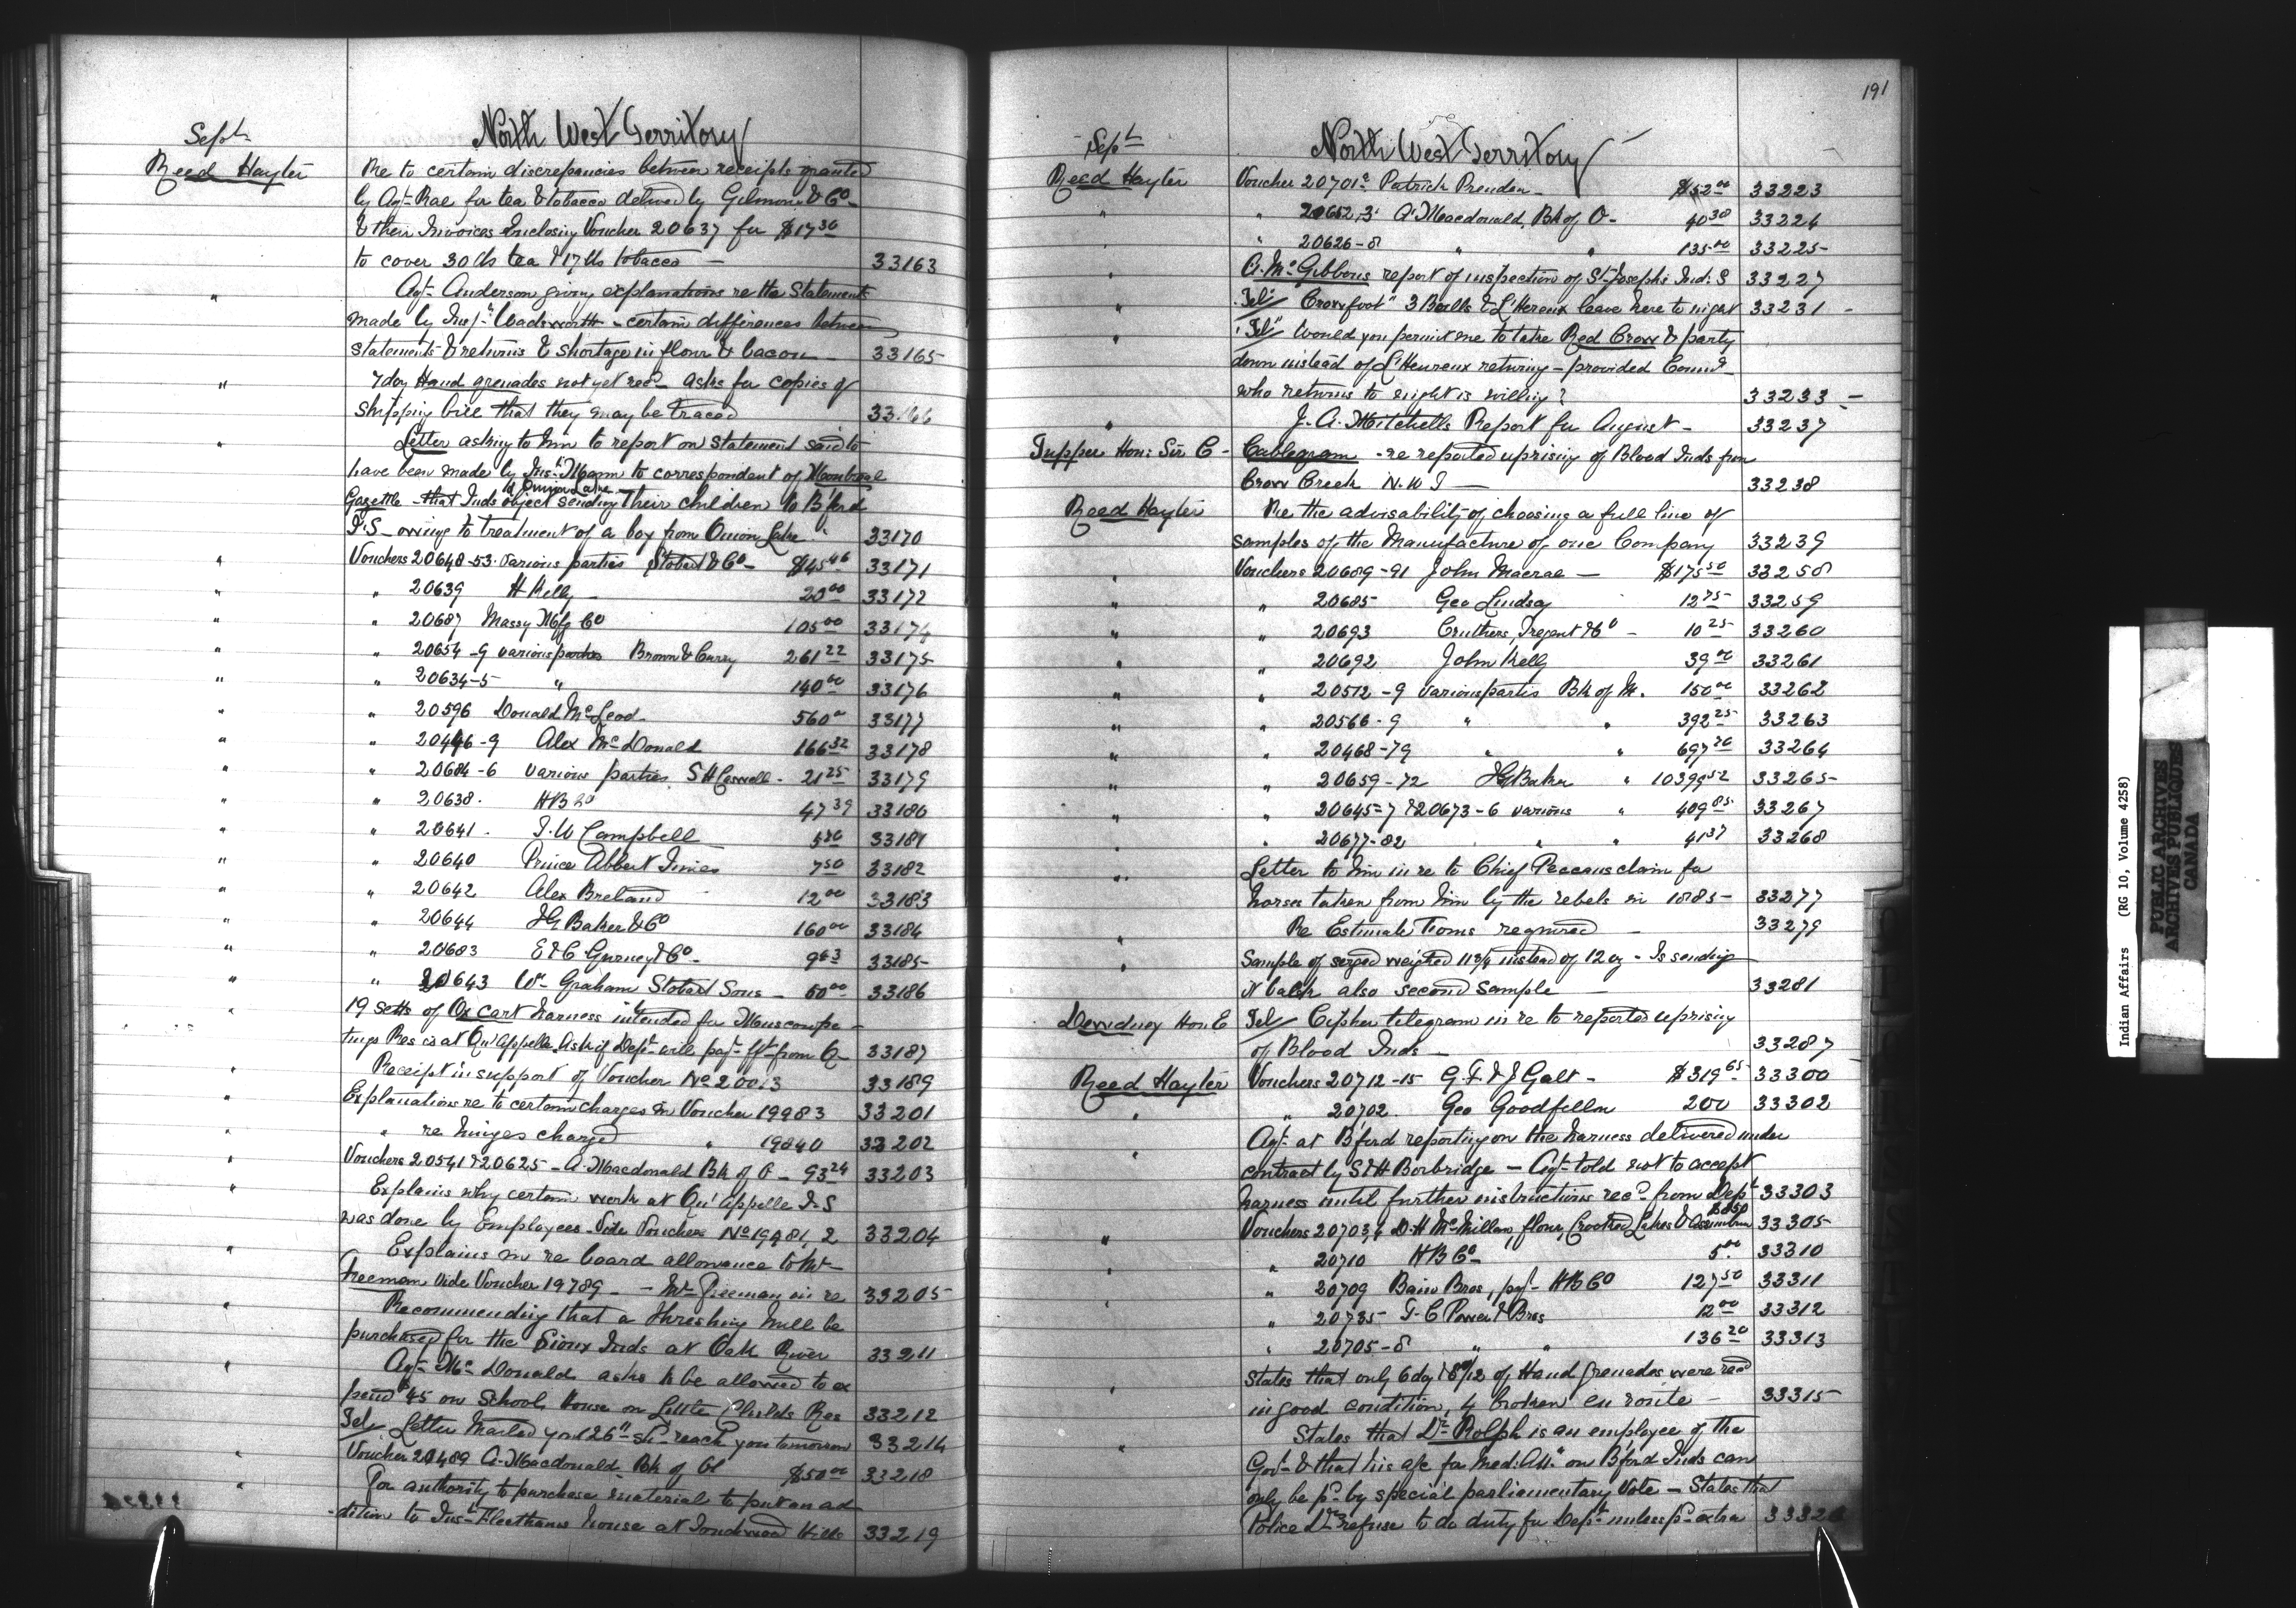 Sept
North West Territory
Reed Hayter
Re to certain discrepancies between receipts granted
by Agt Rae for tea & tobacco delived by Gilmour & Co
& their Invoices Enclosing Voucher 20637 for $17 30
to cover 30 lbs tea & 17 lbs tobacco — 33163
" Agt Anderson giving explanations re the Statements
made by Insp Wadsworth - certain differences between
statements & returns & shortage in flour & bacon — 33165
" 7 doz Hand grenades not yet recd - asks for copies of
shipping bill that they may be traced 33166
" Letter asking to him to report on statement said to
have been made by Ins Mann to correspondent of Montreal
Gazette - that Inds of Onion Lake object sending their children to B'ford
I.S - owing to treatment of a boy from Onion Lake 33170
" Vouchers 20648-53 various parties Stobart & Co - $45 46 33171
" " 20639 H Kelly - 20 00 33172
" " 20687 Massy Mfg Co 105 00 33174
" " 20654-9 various parties Brown & Curry 261 22 33175
" " 20634-5 " 140 00 33176
" " 20596 Donald McLeod 560 00 33177
" " 20446-9 Alex McDonald 166 32 33178
" " 20684-6 various parties S H Caswell - 21 25 33179
" " 20638 H B Co 47 39 33180
" " 20641 T. W Campbell 33181
" " 20640 Prince Albert Times 7 50 33182
" " 20642 Alex Breland 12 00 33183
" " 20644 I G Baker & Co 160 00 33184
" " 20683 E & C Gurney & Co - 9 63 33185
" " 20643 Wm Graham Stobart Sons - 33186
" 19 setts of Ox cart harness intended for Muscowpe-
tungs Res is at Qu'Appelle. Ask if Dept will pay frt from Q - 33187
" Receipt in support of Voucher No 20013 33189
" Explanations re to certain charges in Voucher 19983 33201
" " re hinges charged " 19840 33202
" Vouchers 20541 & 20625 - A. Macdonald Bk of O - 93 24 33203
" Explains why certain work at Qu'Appelle I.S
was done by Employees - Vide Vouchers No 19981, 2 33204
" Explains in re board allowance to Mr
Freeman Vide Voucher 19789 - - Mr Freeman in re 33205
" Recommending that a threshing mill be
purchased for the Sioux Inds at Oak River 33211
" Agt McDonald asks to be allowed to ex
pend $45 on School House on Little Childs Res 33212
Tel Letter Mailed you 26th shd reach you tomorrow 33214
" Voucher 20489 A. Macdonald Bk of O $50 00 33218
" For authority to purchase material to put an ad-
dition to Ins Fleetham's house at Touchwood Hills 33219
191
Sept
North West Territory
Reed Hayter Voucher 20701 Patrick Pruden - $52 00 33223
" " 20652,3 A. Macdonald, Bk of O - 40 30 33224
" " 20626-8 " " 135 00 33225
" A. McGibbons report of inspection of St Joseph's Ind: S 33227
" Tel "Crowfoot" 3 Bulls & L'Hereux leave here to night 33231 -
" Tel Would you permit me to take Red Crow & party
down instead of L'Heureux returning - provided Commr
who returns to night is willing? 33233 -
" J. A. Mitchells Report for August - 33237
Tupper Hon: Sir C - Cablegram - re reported uprising of Blood Inds from
Crow Creek N. W T — 33238
Reed Hayter Re the advisability of choosing a full line of
samples of the Manufacture of one Company 33239
" Vouchers 20689-91 John Macrae — $175 50 33258
" " 20685 Geo Lindsay 12 75 33259
" " 20693 Cruthers, Tregent & Co - 10 25 33260
" " 20692 John Kelly 39 00 33261
" " 20512-9 various parties Bk of M. 150 00 33262
" " 20566-9 " " 392 25 33263
" " 20468-79 " " 697 20 33264
" " 20659-72 I G Baker " 10399 52 33265
" " 20645-7 & 20673-6 various " 409 85 33267
" " 20677-82 " " 41 37 33268
" Letter to him in re to Chief Peccans claim for
horses taken from him by the rebels in 1885 - 33277
" Re Estimate Forms required - 33279
" Sample of serged weighed 11 3/4 instead of 12 oz - Is sending
it back also second sample — 33281
Dewdney Hon E Tel Cipher telegram in re to reported uprising
of Blood Inds — 33287
Reed Hayter Vouchers 20712-15 G. F. & J Galt - $319 65 33300
" " 20702 Geo Goodfellow 200 33302
" Agt at B'ford reporting on the harness delivered under
contract by S & H Borbridge - Agt told not to accept
harness until further instructions recd from Dept 33303
" Vouchers 20703,4 D. H McMillan, flour, Crooked Lakes & Assiniboine 33305
" " 20710 H B Co - 5 00 33310
" " 20709 Bain Bros, pay H B Co 127 50 33311
" 20735 T. C Power & Bros 12 00 33312
" 20705-8 " " 136 20 33313
" States that only 6 doz & 8/12 of Hand grenades were recd
in good condition, 4 broken en route - 33315
" States that Dr Rolph is an employee of the
Govt & that his a/c for Med: Att: on B'ford Inds can
only be pd by special parliamentary Vote - States that
Police Drs refuse to do duty for Dept unless pd extra
Indian Affairs (RG 10, Volume 4258)
PUBLIC ARCHIVES
ARCHIVES PUBLIQUES
CANADA